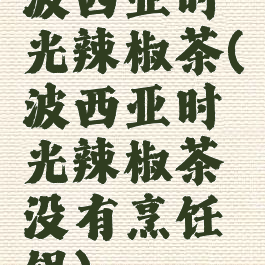 波西亚时
光辣椒茶(
波西亚时
光辣椒茶
没有烹饪
锅)